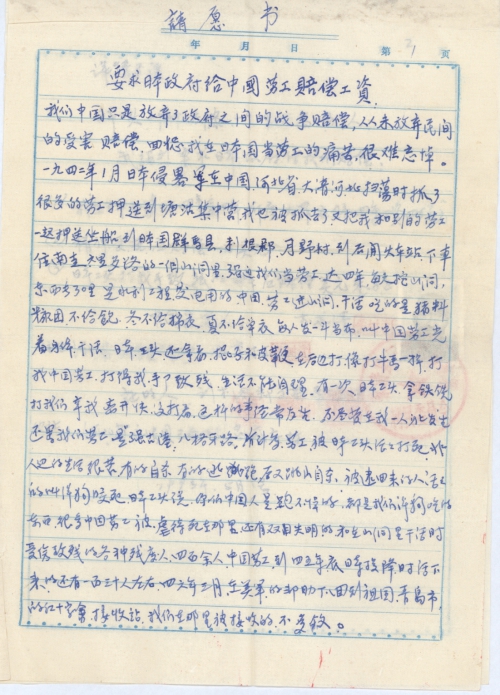 請愿书
年 月 日 第 1 页
要求日本政府给中國劳工赔偿工資
我们中国只是放弃了政府之间的战争赔偿，从未放弃民间
的受害赔偿，回忆我在日本国当劳工的痛苦，很难忘掉。
一九四二年1月日本侵畧军在中国，河北省大清河北扫荡时抓了
很多的劳工押送到塘沽集中营，我也被抓去了，又把我和别的劳工
一起押送坐船到日本国群马县，利根郡，月野村，到后闲火车站下車
住南走 的一個山洞里，强迫我们当劳工达四年，每天挖山洞，
东西 里是水利工程发电用的中国劳工进山洞，干活吃的是猪料
米团，不给饱，冬不给棉衣，夏不给单衣，每人发一斗当布，叫中国劳工光
着身体干活，日本工头还拿着，棍子和皮鞭在后边打，像打牛马一样，打
我中国劳工，打傷我手 致残，生活不能自理，有一次，日本工头，拿铁锹
打我们幸我 开快，没打着，这样的事活常发生，不尽发生我一人的发生
还是我们劳工 ，八格牙路，有许多劳工被日本工头活活打死，非
人边的生活很苦有的自杀，有的逃跑 山自杀，被逮回来的人活活
的叫洋狗咬死，日本工头说，你们中国人是跑不掉的，都是我们洋狗吃的
东西，很多中国劳工被虐待死在那里还有双目失明的和在山洞里干活时
受伤致残的各种残废人，四百余人，中国劳工到四五年底日本投降时活下
来的还有一百三十人左右，四六年三月，在美军的邦助下，回到祖国，青岛市，
的红十字會，接收站，我们在那里被接收的，不多叙。